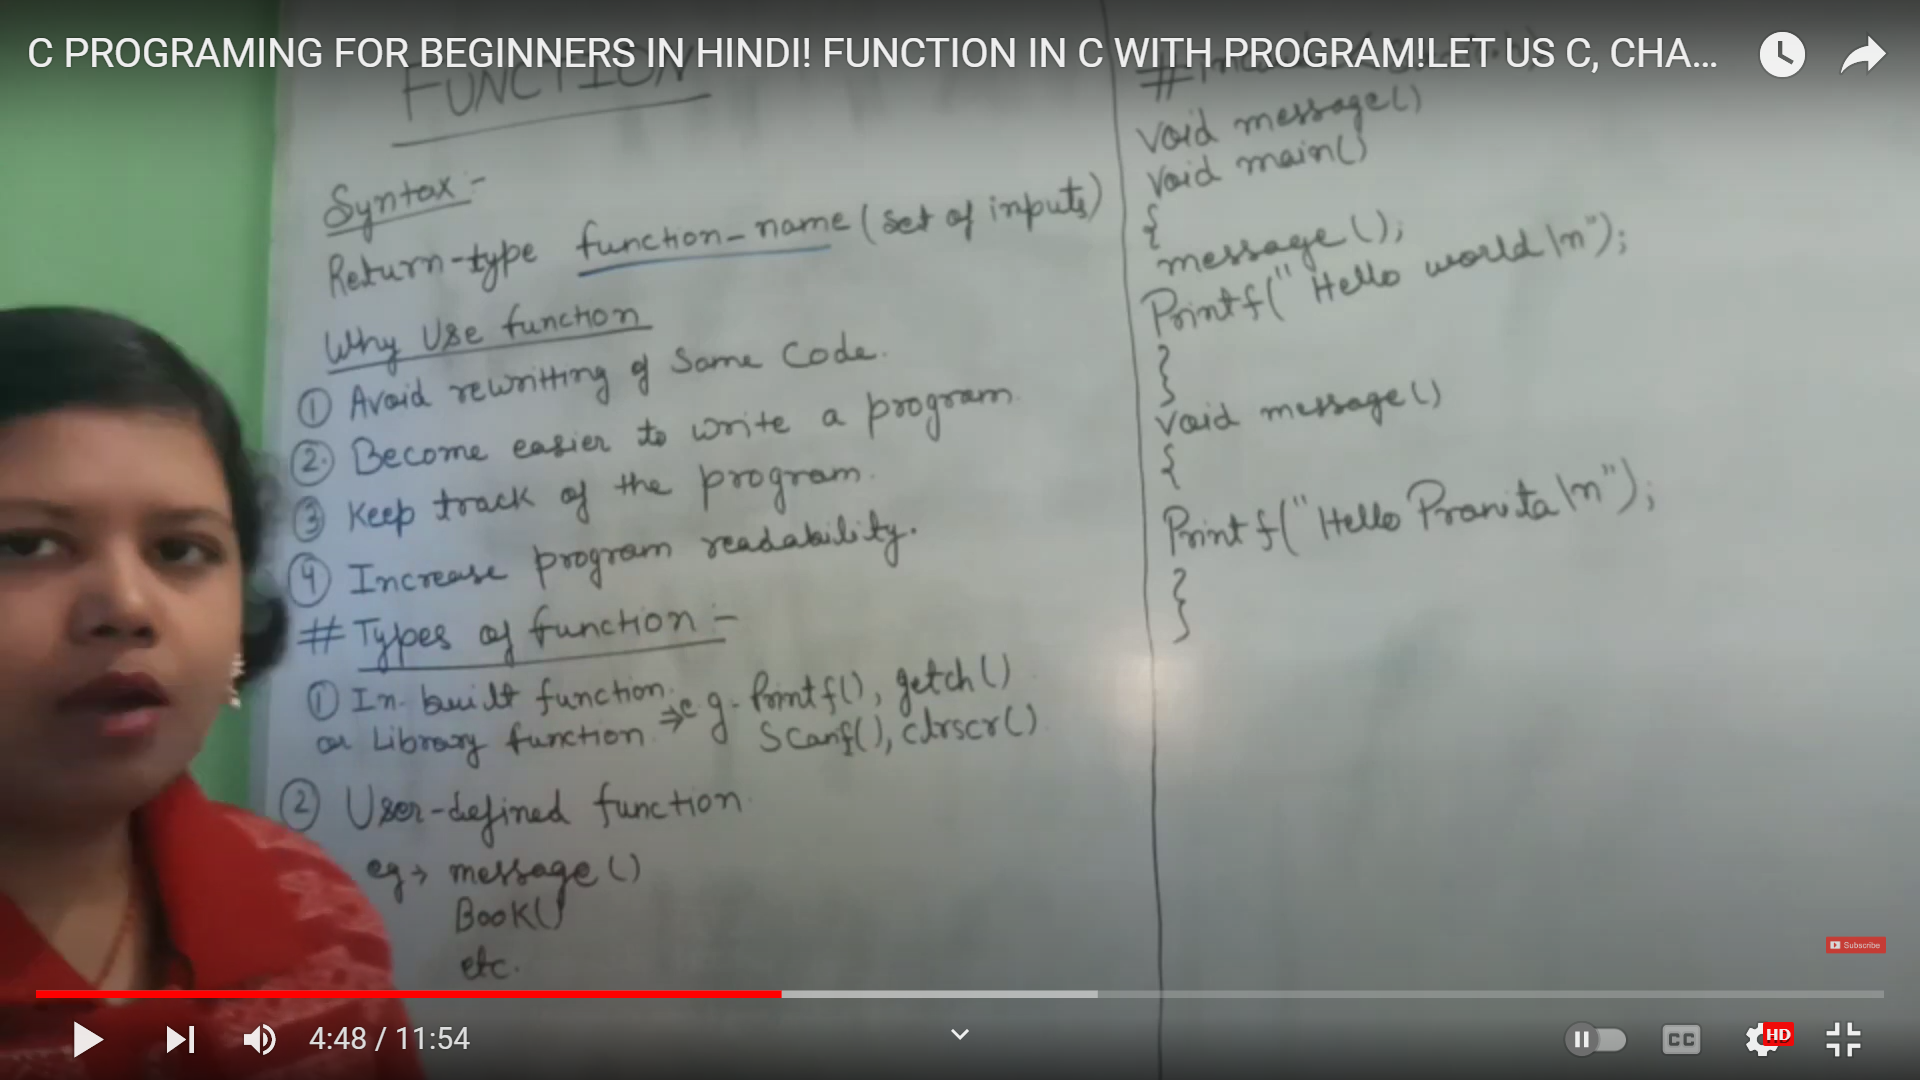 C PROGRAMING FOR BEGINNERS IN HINDI! FUNCTION IN C WITH PROGRAM!LET US C, CHA...
FUNCTION
Syntax :-
Return-type function-name (set of inputs)
Why Use function
① Avoid rewritting of Same Code.
② Become easier to write a program.
③ Keep track of the program.
④ Increase program readability.
# Types of function :-
① In-built function.
or Library function. ⇒ e.g. Printf(), getch()
Scanf(), clrscr()
② User-defined function.
eg → message ()
Book()
etc.
void message()
void main()
{
message ();
Printf("Hello world \n");
}
void message()
{
Printf("Hello Pranita \n");
}
Subscribe
4:48 / 11:54
CC
HD